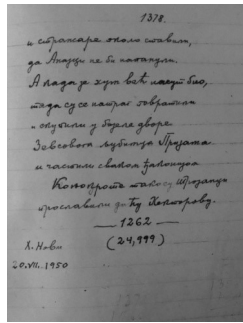 1378.
и стражаре около ставили,
да Ахајци не би напанули.
А када је хум већ насут био,
тада су се натраг повратили
и скупили у боље дворе
Зевсовога љубимца Пријама
и частили сваком ђаконијом
Конопроте тако су Тројанци
прославили даћу Хекторову.
— 1262 —
(24,999)
Х. Нови
20.VII. 1950